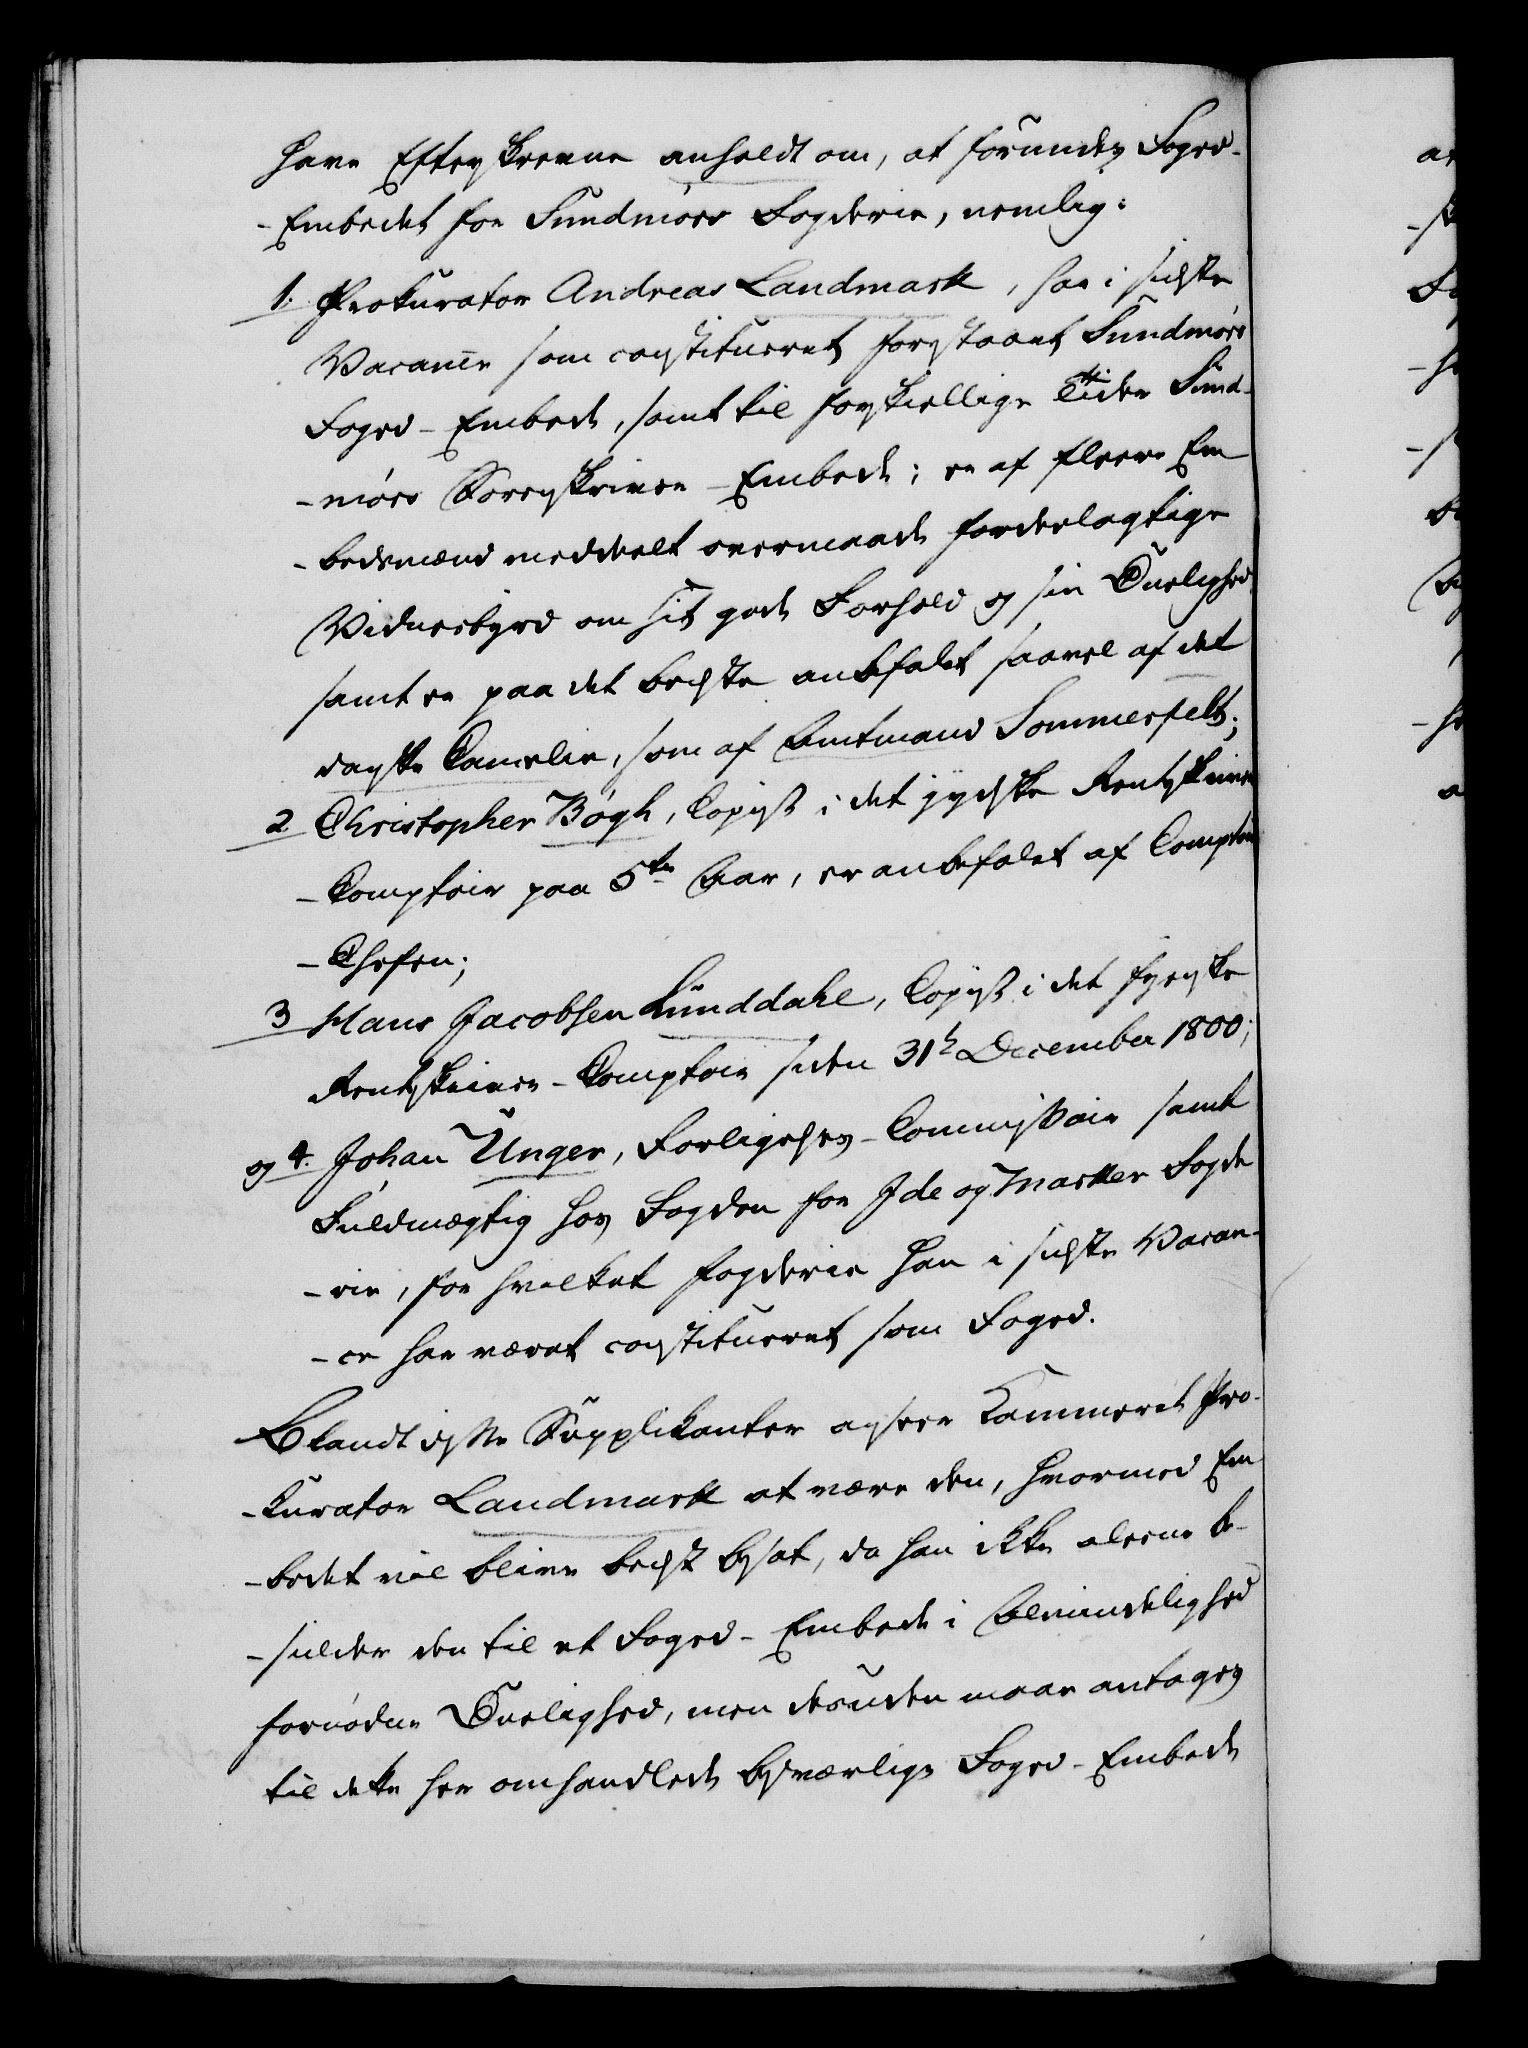 have Efterskrevne anholdt om, at forundes Foged-
-Embedet for Sundmörs Fogderie, nemlig:
1. Prokurator Andreas Landmark, har i sidste
Vacance som constitueret forstaaet Sundmörs
Foged-Embede, samt til forskiellige Tider Sund-
-mörs Sorenskriver-Embede; er af fleere Em
-bedsmænd meddeelt overmaade fordeelagtige
Vidnesbyrd om sit gode Forhold og sin Duelighed
samt er paa det bedste anbefalet saavel af det
danske Cancelie, som af Amtmand Sommerfelt;
2 Christopher Bögh, Copist i det jydske Renteskriver
-Comptoir paa 5te Aar, er anbefalet af Comptoir
-Chefen;
3 Hans Jacobsen Lunddahl, Copist i det fynske
Renteskriver-Comptoir siden 31te December 1800;
og 4. Johan Unger, Forligelses-Commissair samt
Fuldmægtig hos Fogden for Ide og Marker Fogde
-rie, for hvilket Fogderie han i sidste Vacan-
-ce har været constitueret som Foged.
Blandt disse Supplikanter ansees Kammeret Pro-
-kurator Landmark at være den, hvormed Em
-bedet vil blive bedst besat, da han ikke aleene be-
-sidder den til et Foged-Embede i Almindelighed
fornödne Duelighed, men desuden maae antages
til dette her omhandlede besværlige Foged-Embede